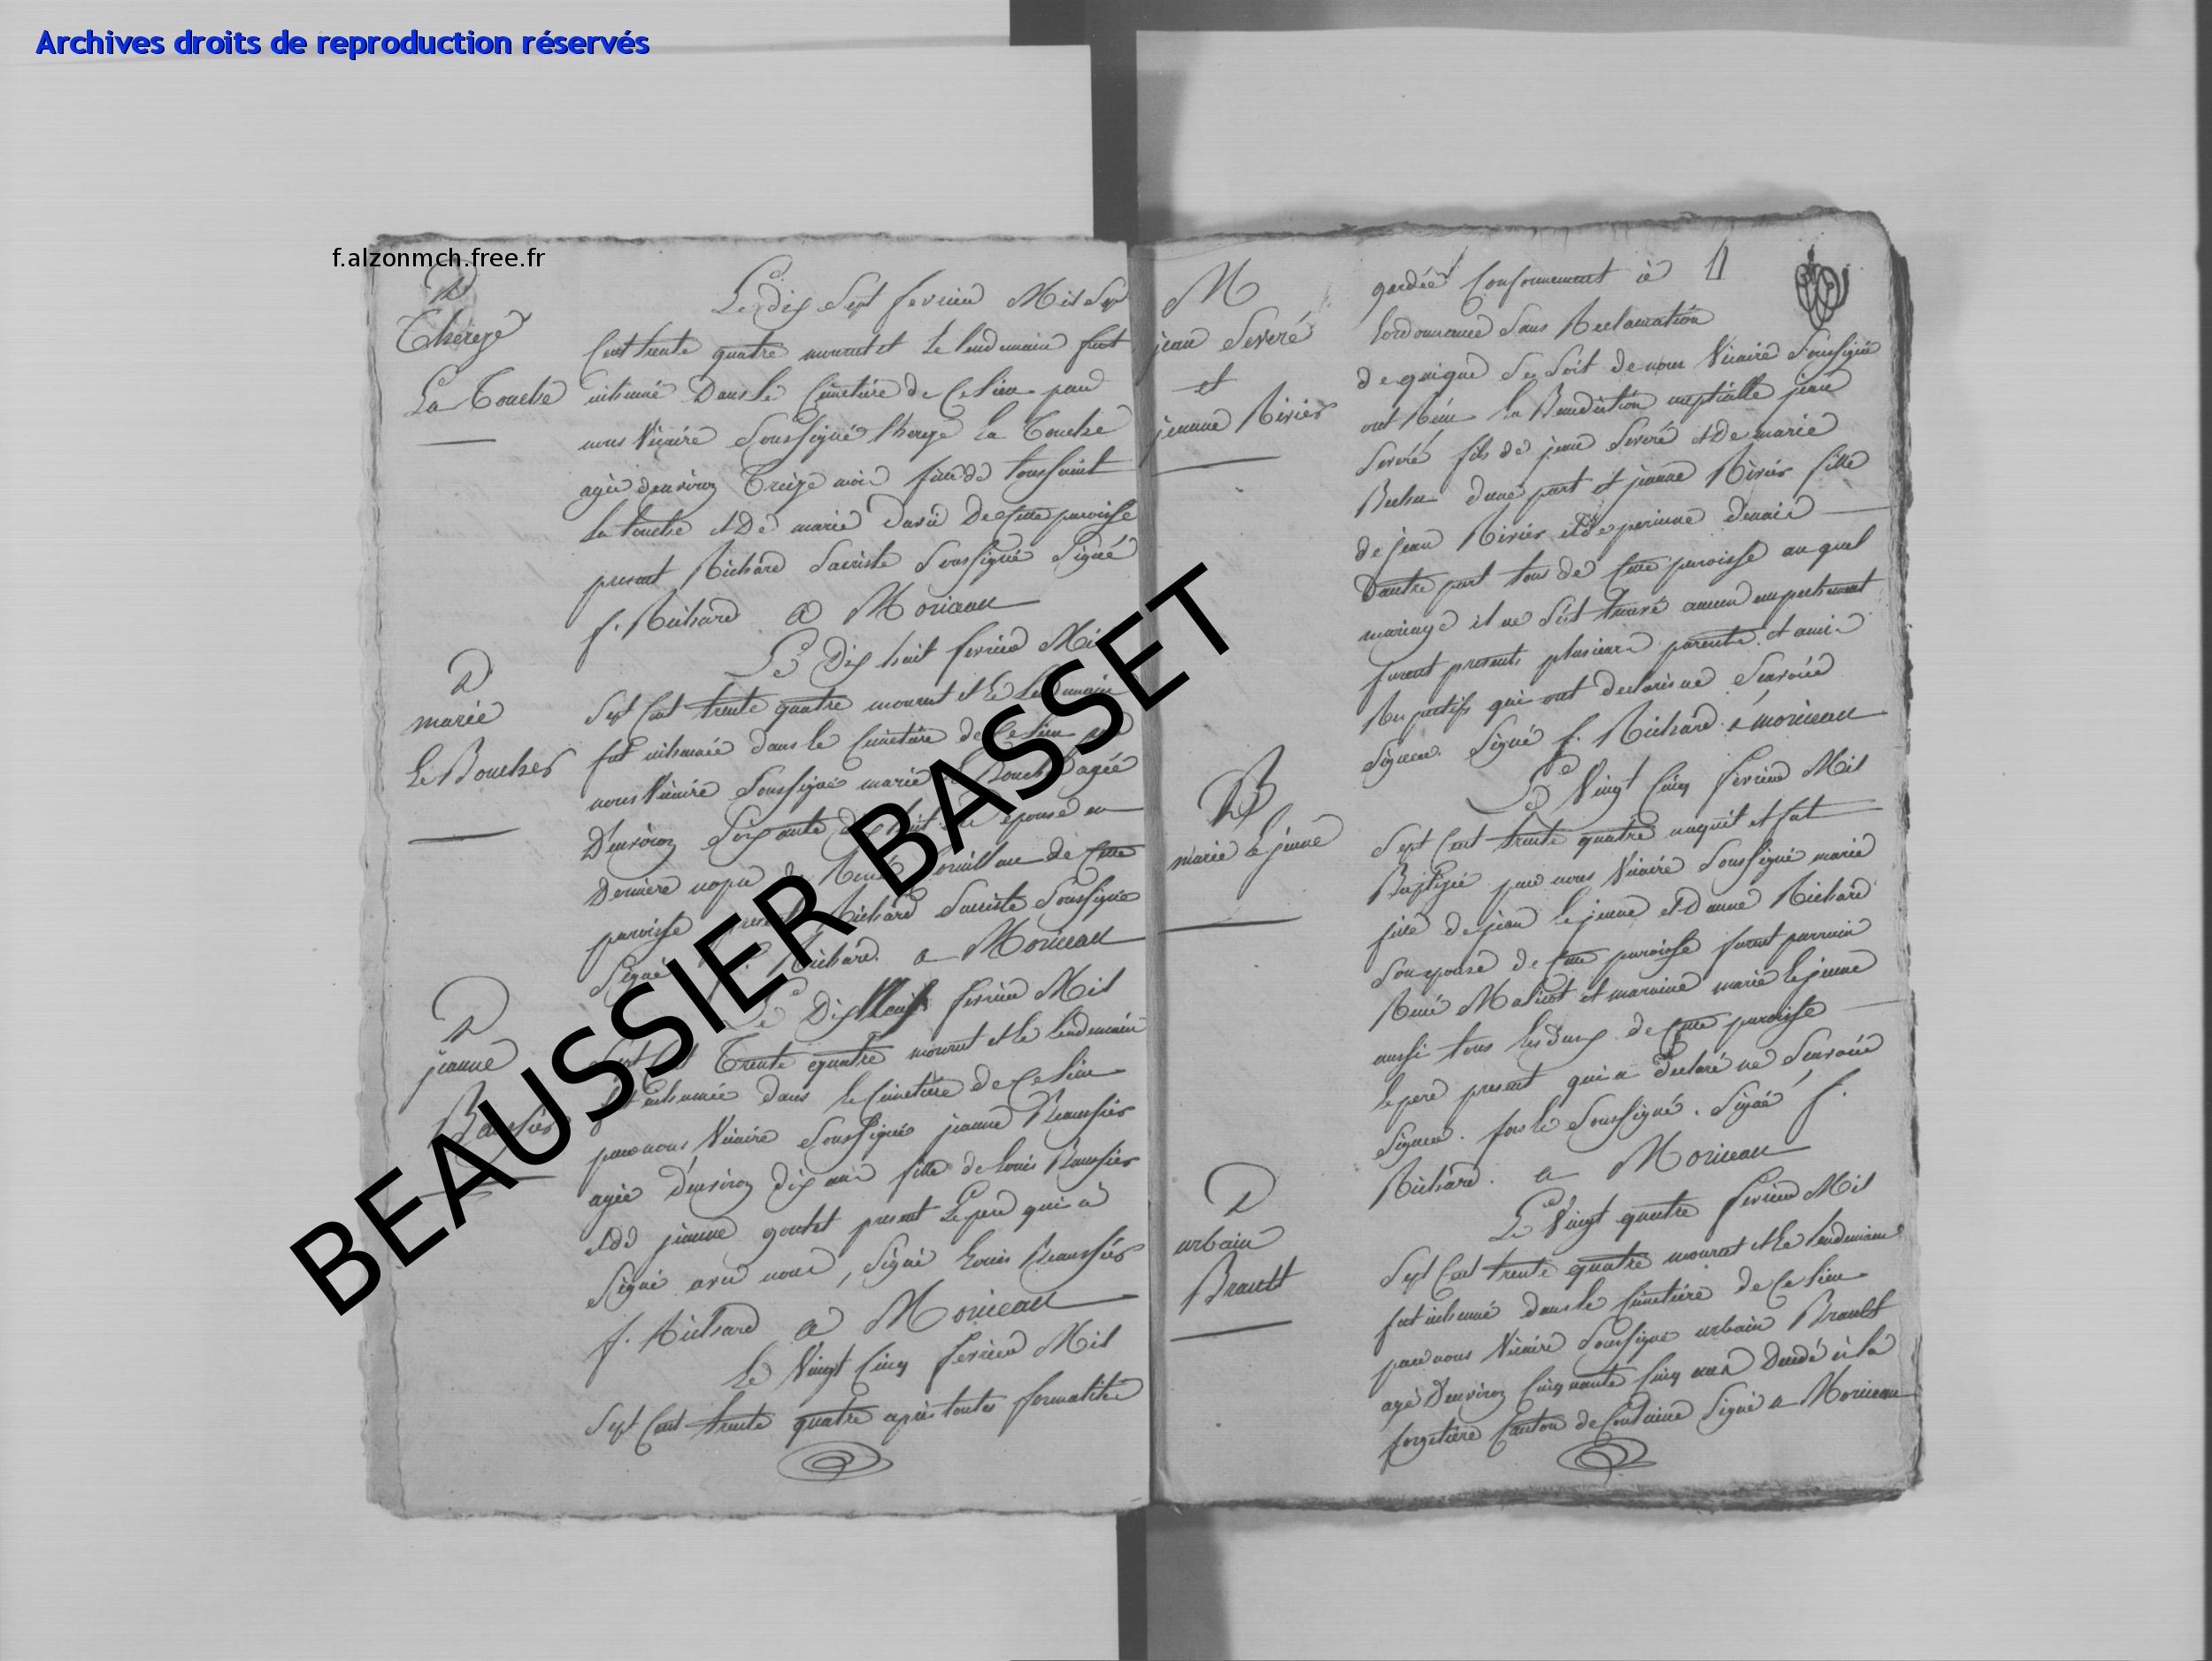 Archives droits de reproduction réservés
f.alzonmch.free.fr
D
Thereze
La Touche
Le dix Sept fevrier Mil Sept
Cent trente quatre mourut et Le lendemain fut
inhumé Dans le Cimetiere de Ce lieu par
nous Vicaire Soussigné thereze La Touche
agée denviron Treize mois fille de toussaint
La touche et De marie De Cette paroisse
present Richard Sacriste Soussigné Signé
f. Richard a Moriceau
D
marie
Le Boucher
Le Dix huit fevrier Mil
Sept Cent trente quatre mourut et Le Lendemain
fut inhumée dans le Cimetiere de Ce lieu par
nous Vicaire Soussigné marie agée
D'environ Soixante épouse en
Derniere de René de Cette
paroisse present Richard Sacriste Soussigné
Signé f. Richard. a Moriceau
D
jeanne
Baussier
Le Dix Neuf fevrier Mil
Sept Cent Trente quatre mourut et le lendemain
fut inhumée dans le Cimetiere de Ce lieu
par nous Vicaire Soussigné jeanne Beaussier
agée D'environ dix ans fille de Louis Baussier
et de jeanne present Le pere qui a
Signé avec nous, Signé Louis Beaussier
f. Richard a Moriceau
Le Vingt Cinq fevrier Mil
Sept Cent trente quatre après toutes formalités
M
jean Severé
et
jeanne Rivier
gardées Conformement à 11
lordonnance Sans Reclamation
de quique Ce Soit de nous Vicaire Soussigné
ont Recu la Benediction nuptialle jean
Severé fils de jean Severé et De marie
dune part et jeanne Rivier fille
de jean Rivier et de perinne
Dautre part tous de Cette paroisse au quel
mariage il ne Sest trouvé aucun empechement
furent presents plusieurs parents et amis
Respectifs qui ont declaré ne Scavoir
Signer. Signé f. Richard. a moriceau
B
marie Le jeune
Le Vingt Cinq fevrier Mil
Sept Cent trente quatre naquit et fut
Baptizée par nous Vicaire Soussigné marie
fille de jean le jeune et D'anne Richard
Son epouse de Cette paroisse furent parrain
René Malicot et maraine marie le jeune
aussi tous les deux de Cette paroisse
le pere present qui a Declaré ne Scavoir
Signer. fors le Soussigné. Signé f.
Richard. a Moriceau
D
urbain
Brault
Le Vingt quatre fevrier Mil
Sept Cent trente quatre mourut et Le lendemain
fut inhumé dans le Cimetiere de Ce lieu
par nous Vicaire Soussigné urbain Brault
agé D'environ Cinquante Cinq ans Decedé à la
Canton de Signé a Moriceau
BEAUSSIER BASSET